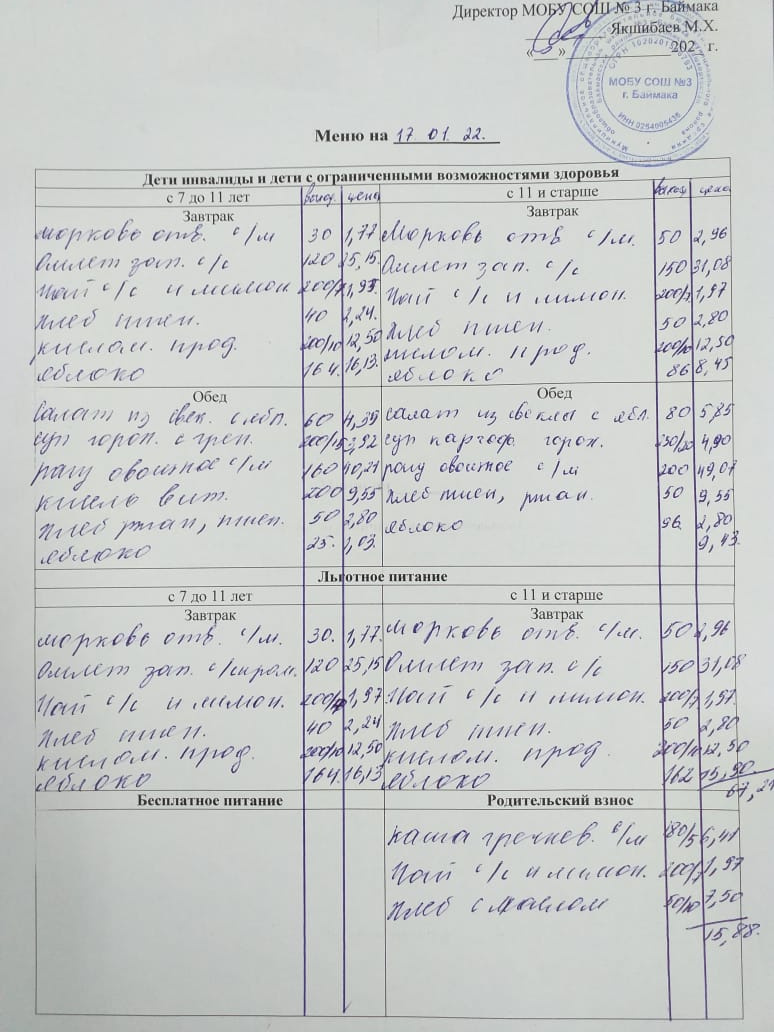 Директор МОБУ СОШ № 3 г. Баймака
Якшибаев М.Х.
«___» 202 г.
МОБУ СОШ №3
г. Баймака
ИНН 0254005436
Меню на 17. 01. 22.
Дети инвалиды и дети с ограниченными возможностями здоровья
с 7 до 11 лет выход цена с 11 и старше выход цена
Завтрак Завтрак
Морковь отв. с/м 30 1,77 Морковь отв с/м. 50 2,96
Омлет зап. с/с 120 25,15 Омлет зап. с/с 150 31,08
Чай с/с и лимон 200/7 1,97 Чай с/с и лимон. 200/7 1,97
Хлеб пшен. 40 2,24 Хлеб пшен. 50 2,80
кислом. прод. 200/10 12,50 кислом. прод. 200/10 12,50
яблоко 164 16,13 яблоко 86 8,45
Обед Обед
Салат из свек. с ябл. 60 4,39 Салат из свеклы с ябл. 80 5,85
суп горох. с грен. 200/15 3,92 суп картоф. горох. 250/20 4,90
рагу овощное с/м 160 40,21 рагу овощное с/м 200 49,07
кисель вит. 200 9,55 Хлеб пшен, ржан. 50 9,55
Хлеб ржан, пшен. 50 2,80 яблоко 96 2,80
яблоко 25. 1,03. 9,43.
Льготное питание
с 7 до 11 лет с 11 и старше
Завтрак Завтрак
Морковь отв. с/м. 30. 1,77. Морковь отв. с/м. 50 2,96
Омлет зап. с/сыром. 120 25,15 Омлет зап. с/с 150 31,08
Чай с/с и лимон. 200/7 1,97 Чай с/с и лимон. 200/7 1,97.
Хлеб пшен. 40 2,24 Хлеб пшен. 50 2,80
кислом. прод. 200/10 12,50 кислом. прод. 200/10 12,50
яблоко 164 16,13 яблоко 162 15,90
67,21
Бесплатное питание Родительский взнос
каша гречнев. с/м 180/5 6,41
Чай с/с и лимон. 200/7 1,97
Хлеб с маслом 50/10 7,50
15,88.